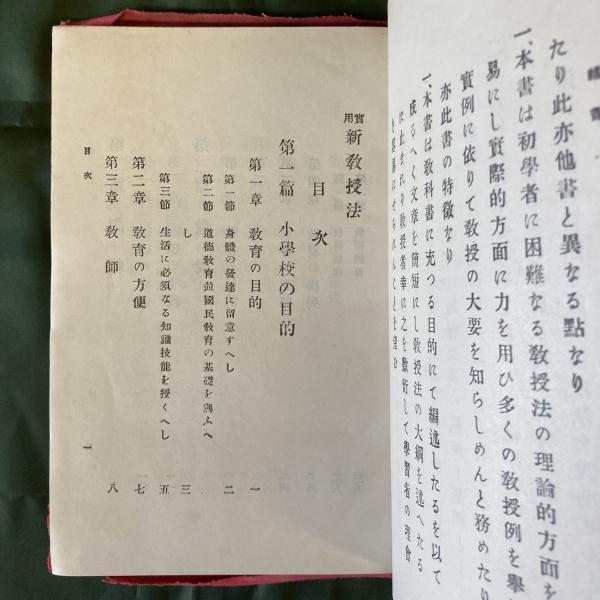 緒言
たり此亦他書と異なる點なり
一、本書は初學者に困難なる敎授法の理論的方面を
易にし實際的方面に力を用ひ多くの敎授例を擧
實例に依りて敎授の大要を知らしめんと務めたり
亦此書の特徵なり
一、本書は敎科書に充つる目的にて編述したるを以て
成るへく文章を簡短にし敎授法の大綱を述へたる
に止まれり敎授者幸に之を敷衍して學習者の理會
を容易にせられんことを望む
實用 新敎授法
目次
第一篇 小學校の目的
第一章 敎育の目的 一
第一節 身體の發達に留意すへし 二
第二節 道德敎育並國民敎育の基礎を與ふへ
し 三
第三節 生活に必須なる知識技能を授くへし 五
第二章 敎育の方便 七
第三章 敎師 八
目次 一